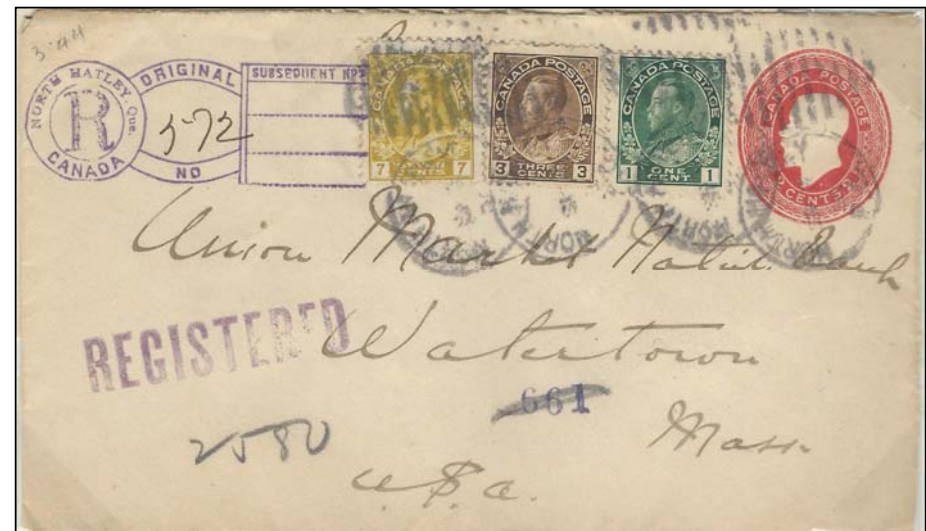 3·44
NORTH HATLEY, Que.
R
CANADA
ORIGINAL
572
NO
SUBSEQUENT NOS
7 CENTS 7
CANADA POSTAGE
3 THREE CENTS 3
CANADA POSTAGE
1 ONE CENT 1
CANADA POSTAGE
CENTS
Union Market Natnl. Bank
REGISTERED
Watertown
661
2580
Mass
U.S.a.